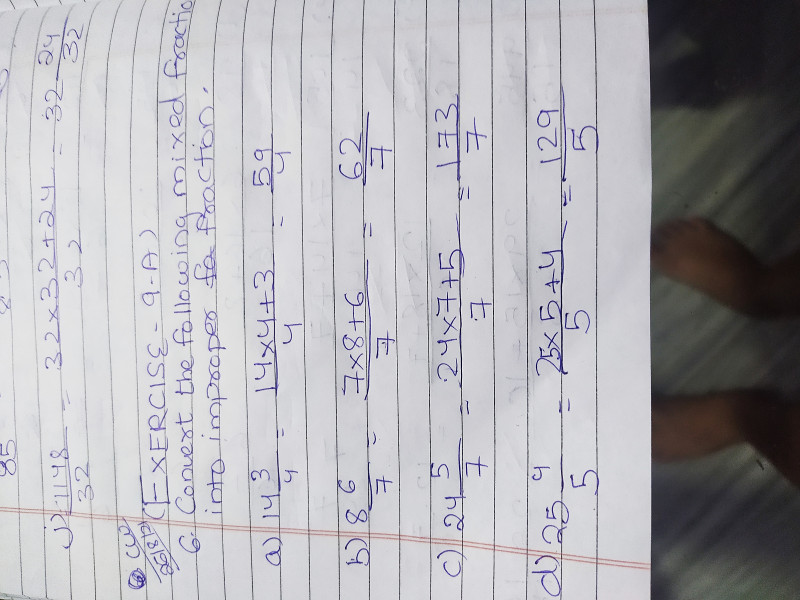 85
j) 1148/32 = 32×32+24/32 = 32 24/32
(EXERCISE-9-A)
6. Convert the following mixed fractio
into improper fraction.
a) 14 3/4 = 14×4+3/4 = 59/4
b) 8 6/7 = 7×8+6/7 = 62/7
c) 24 5/7 = 24×7+5/7 = 173/7
d) 25 4/5 = 25×5+4/5 = 129/5